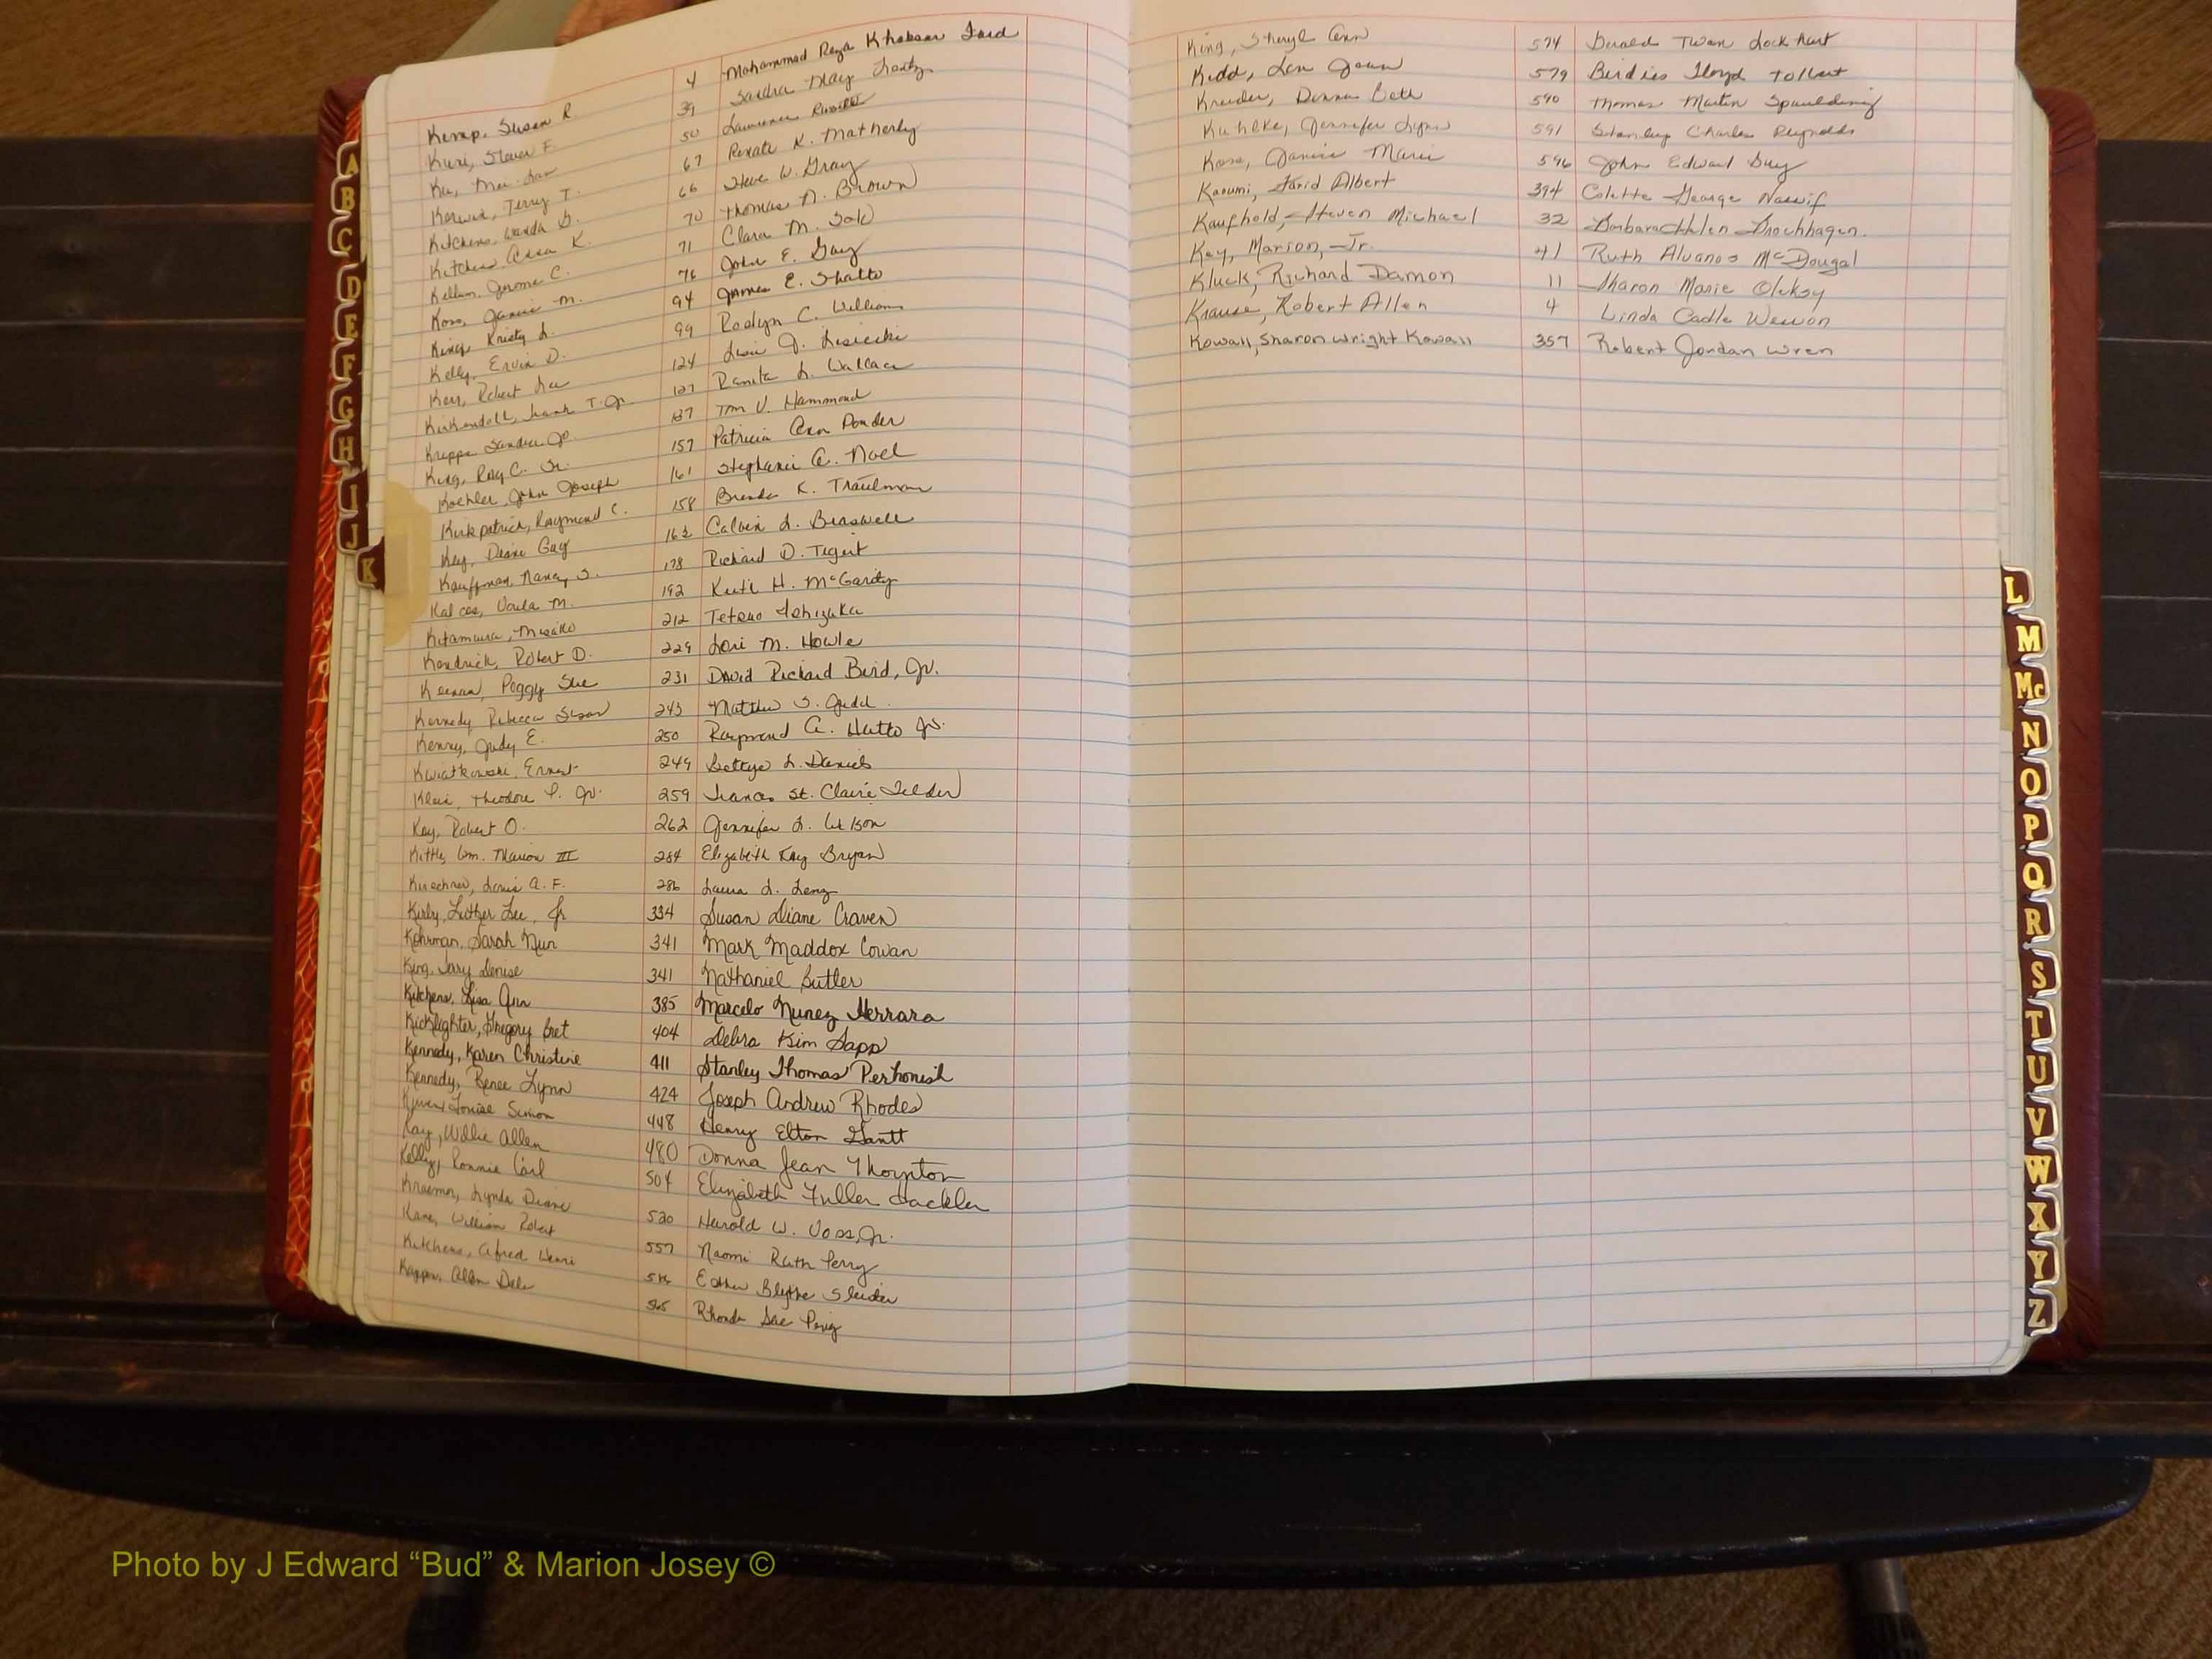 Kemp, Susan R. 4 Mohammad Reza Khabsar Fard
Kuri, Steven F. 39 Sandra May Lentz
Ku, Mei 50 Lawrence Russell
Kerwin, Terry T. 67 Renate K. Matherly
Kitchens, Wanda G. 66 Steve W. Gray
Kitchens, K. 70 Thomas N. Brown
Kellum, Jerome C. 71 Clara M.
Koss, Janice M. 76 John E. Guy
King, Kristy L. 94 James E. Shatto
Kelly, Ervin D. 99 Roslyn C. Williams
Key, Robert Lee 124 J. Lisiecki
Kirkendoll, Frank T. Jr. 127 Ranita L. Wallace
Sandra Jo 137 Tom V. Hammond
King, Roy C. Sr. 157 Patricia Ann Ponder
Koehler, John Joseph 161 Stephanie A. Noel
Kirkpatrick, Raymond C. 158 Brenda K. Trautman
Key, Diane Gay 162 Calvin L. Braswell
Kauffman, Nancy S. 178 Richard D. Tegert
Voula M. 192 Keith H. McGarity
Kitamura, Misako 212 Tetsuo Ishizuka
Kendrick, Robert D. 229 Lori M. Howle
Keenan, Peggy Sue 231 David Richard Bird, Jr.
Kennedy, Rebecca Susan 243 Matthew S. Judd
Kenny, Judy E. 250 Raymond A. Hutto Jr.
Kwiatkowski, Ernest 249 Bettye L. Daniels
Klein, Theodore P. Jr. 259 Frances St. Claire Felder
Kay, Robert O. 262 Jennifer L. Wilson
Kittle, Wm. Marion III 284 Elizabeth Kay Bryan
Kirschner, Louis A. F. 286 Laura L. Lenz
Kirby, Luther Lee, Jr 334 Susan Diane Craven
Kohrman, Sarah Nun 341 Mark Maddox Cowan
King, Jerry Denise 341 Nathaniel Butler
Kitchens, Lisa Ann 385 Marcelo Nunez Herrara
Kicklighter, Gregory Bret 404 Debra Kim Sapp
Kennedy, Karen Christine 411 Stanley Thomas Perhonish
Kennedy, Renee Lynn 424 Joseph Andrew Rhodes
Louise Simon 448 Henry Elton Gantt
Kay, Willie Allen 480 Donna Jean Thornton
Kelly, Ronnie Carl 504 Elizabeth Fuller Hackler
Kraemer, Lynda Diane 520 Harold W. Voss, Jr.
Kane, William Robert 557 Naomi Ruth Perry
Kitchens, Alfred Henri Esther Blythe Sleider
Allen Dale 565 Rhonda Sae
King, Sheryl Ann 574 Donald Twan Lockhart
Kidd, Lou Joann 579 Birdies Lloyd Tolbert
Kreider, Donna Beth 590 Thomas Martin Spaulding
Kuhlke, Jennifer Lynn 591 Stanley Charles Reynolds
Koss, Janice Marie 596 John Edward Guy
Karumi, Farid Albert 394 Colette George Nassif
Kaufhold, Steven Michael 32 Barbara Helen Drochhagen.
Key, Marion, Jr. 41 Ruth Alvanos McDougal
Kluck, Richard Damon 11 Sharon Marie Oleksy
Krause, Robert Allen 4 Linda Cadle Wesson
Kowall, Sharon Wright Kowall 357 Robert Jordan Wren
A
B
C
D
E
F
G
H
I
J
K
L
M
Mc
N
O
P
Q
R
S
T
U
V
W
X
Y
Z
Photo by J Edward “Bud” & Marion Josey ©